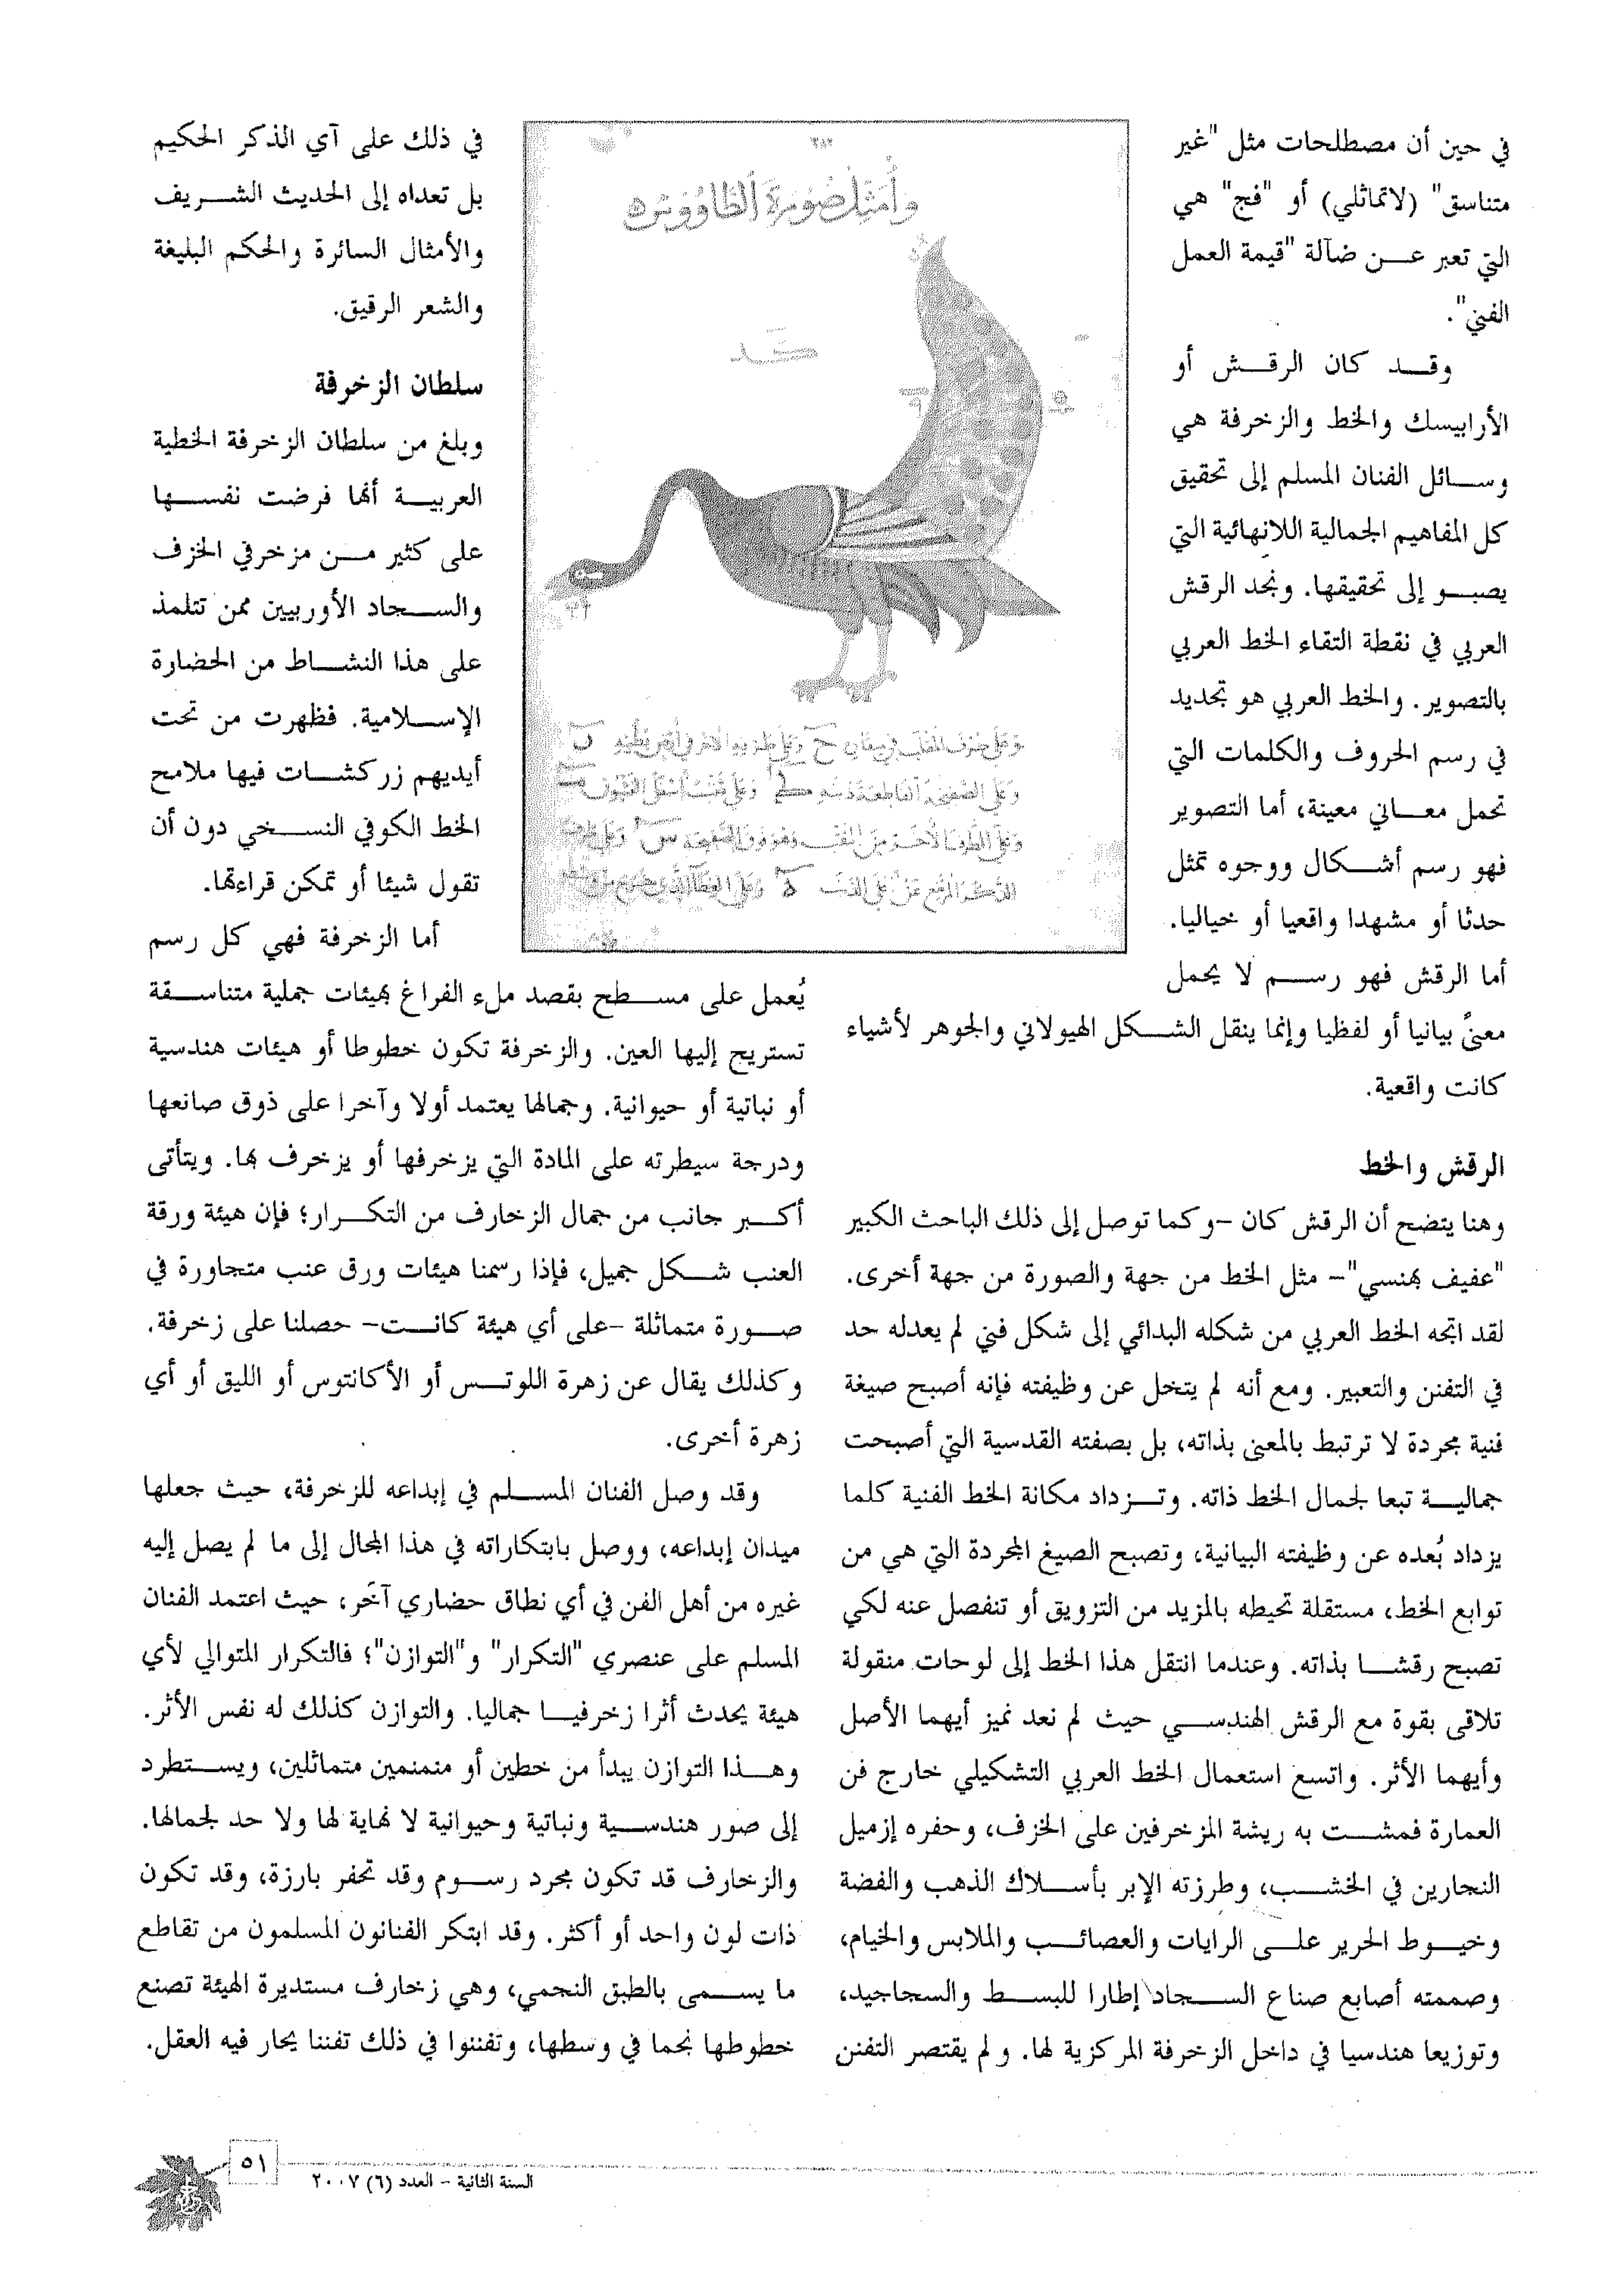 في حين أن مصطلحات مثل "غير
متناسق" (لاتماثلي) أو "فج" هي
التي تعبر عن ضآلة "قيمة العمل
الفني".
وقد كان الرقش أو
الأرابيسك والخط والزخرفة هي
وسائل الفنان المسلم إلى تحقيق
كل المفاهيم الجمالية اللانهائية التي
يصبو إلى تحقيقها. ونجد الرقش
العربي في نقطة التقاء الخط العربي
بالتصوير. والخط العربي هو تجديد
في رسم الحروف والكلمات التي
تحمل معاني معينة، أما التصوير
فهو رسم أشكال ووجوه تمثل
حدثا أو مشهدا واقعيا أو خياليا.
أما الرقش فهو رسم لا يحمل
معنىً بيانيا أو لفظيا وإنما ينقل الشكل الهيولاني والجوهر لأشياء
كانت واقعية.
الرقش والخط
وهنا يتضح أن الرقش كان -وكما توصل إلى ذلك الباحث الكبير
"عفيف بهنسي"- مثل الخط من جهة والصورة من جهة أخرى.
لقد اتجه الخط العربي من شكله البدائي إلى شكل فني لم يعدله حد
في التفنن والتعبير. ومع أنه لم يتخل عن وظيفته فإنه أصبح صيغة
فنية مجردة لا ترتبط بالمعنى بذاته، بل بصفته القدسية التي أصبحت
جمالية تبعا لجمال الخط ذاته. وتزداد مكانة الخط الفنية كلما
يزداد بُعده عن وظيفته البيانية، وتصبح الصيغ المجردة التي هي من
توابع الخط، مستقلة تحيطه بالمزيد من التزويق أو تنفصل عنه لكي
تصبح رقشا بذاته. وعندما انتقل هذا الخط إلى لوحات منقولة
تلاقى بقوة مع الرقش الهندسي حيث لم نعد نميز أيهما الأصل
وأيهما الأثر. واتسع استعمال الخط العربي التشكيلي خارج فن
العمارة فمشت به ريشة المزخرفين على الخزف، وحفره إزميل
النجارين في الخشب، وطرزته الإبر بأسلاك الذهب والفضة
وخيوط الحرير على الرايات والعصائب والملابس والخيام،
وصممته أصابع صناع السجاد إطارا للبسط والسجاجيد،
وتوزيعا هندسيا في داخل الزخرفة المركزية لها. ولم يقتصر التفنن
٣٨٢
وأمثل صورة الطاووس
في ذلك على آي الذكر الحكيم
بل تعداه إلى الحديث الشريف
والأمثال السائرة والحكم البليغة
والشعر الرقيق.
سلطان الزخرفة
وبلغ من سلطان الزخرفة الخطية
العربية أنها فرضت نفسها
على كثير من مزخرفي الخزف
والسجاد الأوربيين ممن تتلمذ
على هذا النشاط من الحضارة
الإسلامية. فظهرت من تحت
أيديهم زركشات فيها ملامح
الخط الكوفي النسخي دون أن
تقول شيئا أو تمكن قراءتها.
أما الزخرفة فهي كل رسم
يُعمل على مسطح بقصد ملء الفراغ بهيئات جملية متناسقة
تستريح إليها العين. والزخرفة تكون خطوطا أو هيئات هندسية
أو نباتية أو حيوانية. وجمالها يعتمد أولا وآخرا على ذوق صانعها
ودرجة سيطرته على المادة التي يزخرفها أو يزخرف بها. ويتأتى
أكبر جانب من جمال الزخارف من التكرار؛ فإن هيئة ورقة
العنب شكل جميل، فإذا رسمنا هيئات ورق عنب متجاورة في
صورة متماثلة -على أي هيئة كانت- حصلنا على زخرفة.
وكذلك يقال عن زهرة اللوتس أو الأكانتوس أو الليق أو أي
زهرة أخرى.
وقد وصل الفنان المسلم في إبداعه للزخرفة، حيث جعلها
ميدان إبداعه، ووصل بابتكاراته في هذا المجال إلى ما لم يصل إليه
غيره من أهل الفن في أي نطاق حضاري آخَر، حيث اعتمد الفنان
المسلم على عنصري "التكرار" و"التوازن"؛ فالتكرار المتوالي لأي
هيئة يحدث أثرا زخرفيا جماليا. والتوازن كذلك له نفس الأثر.
وهذا التوازن يبدأ من خطين أو منمنمين متماثلين، ويستطرد
إلى صور هندسية ونباتية وحيوانية لا نهاية لها ولا حد لجمالها.
والزخارف قد تكون مجرد رسوم وقد تحفر بارزة، وقد تكون
ذات لون واحد أو أكثر. وقد ابتكر الفنانون المسلمون من تقاطع
ما يسمى بالطبق النجمي، وهي زخارف مستديرة الهيئة تصنع
خطوطها نجما في وسطها، وتفننوا في ذلك تفننا يحار فيه العقل.
٥١
السنة الثانية - العدد (٦) ٢٠٠٧